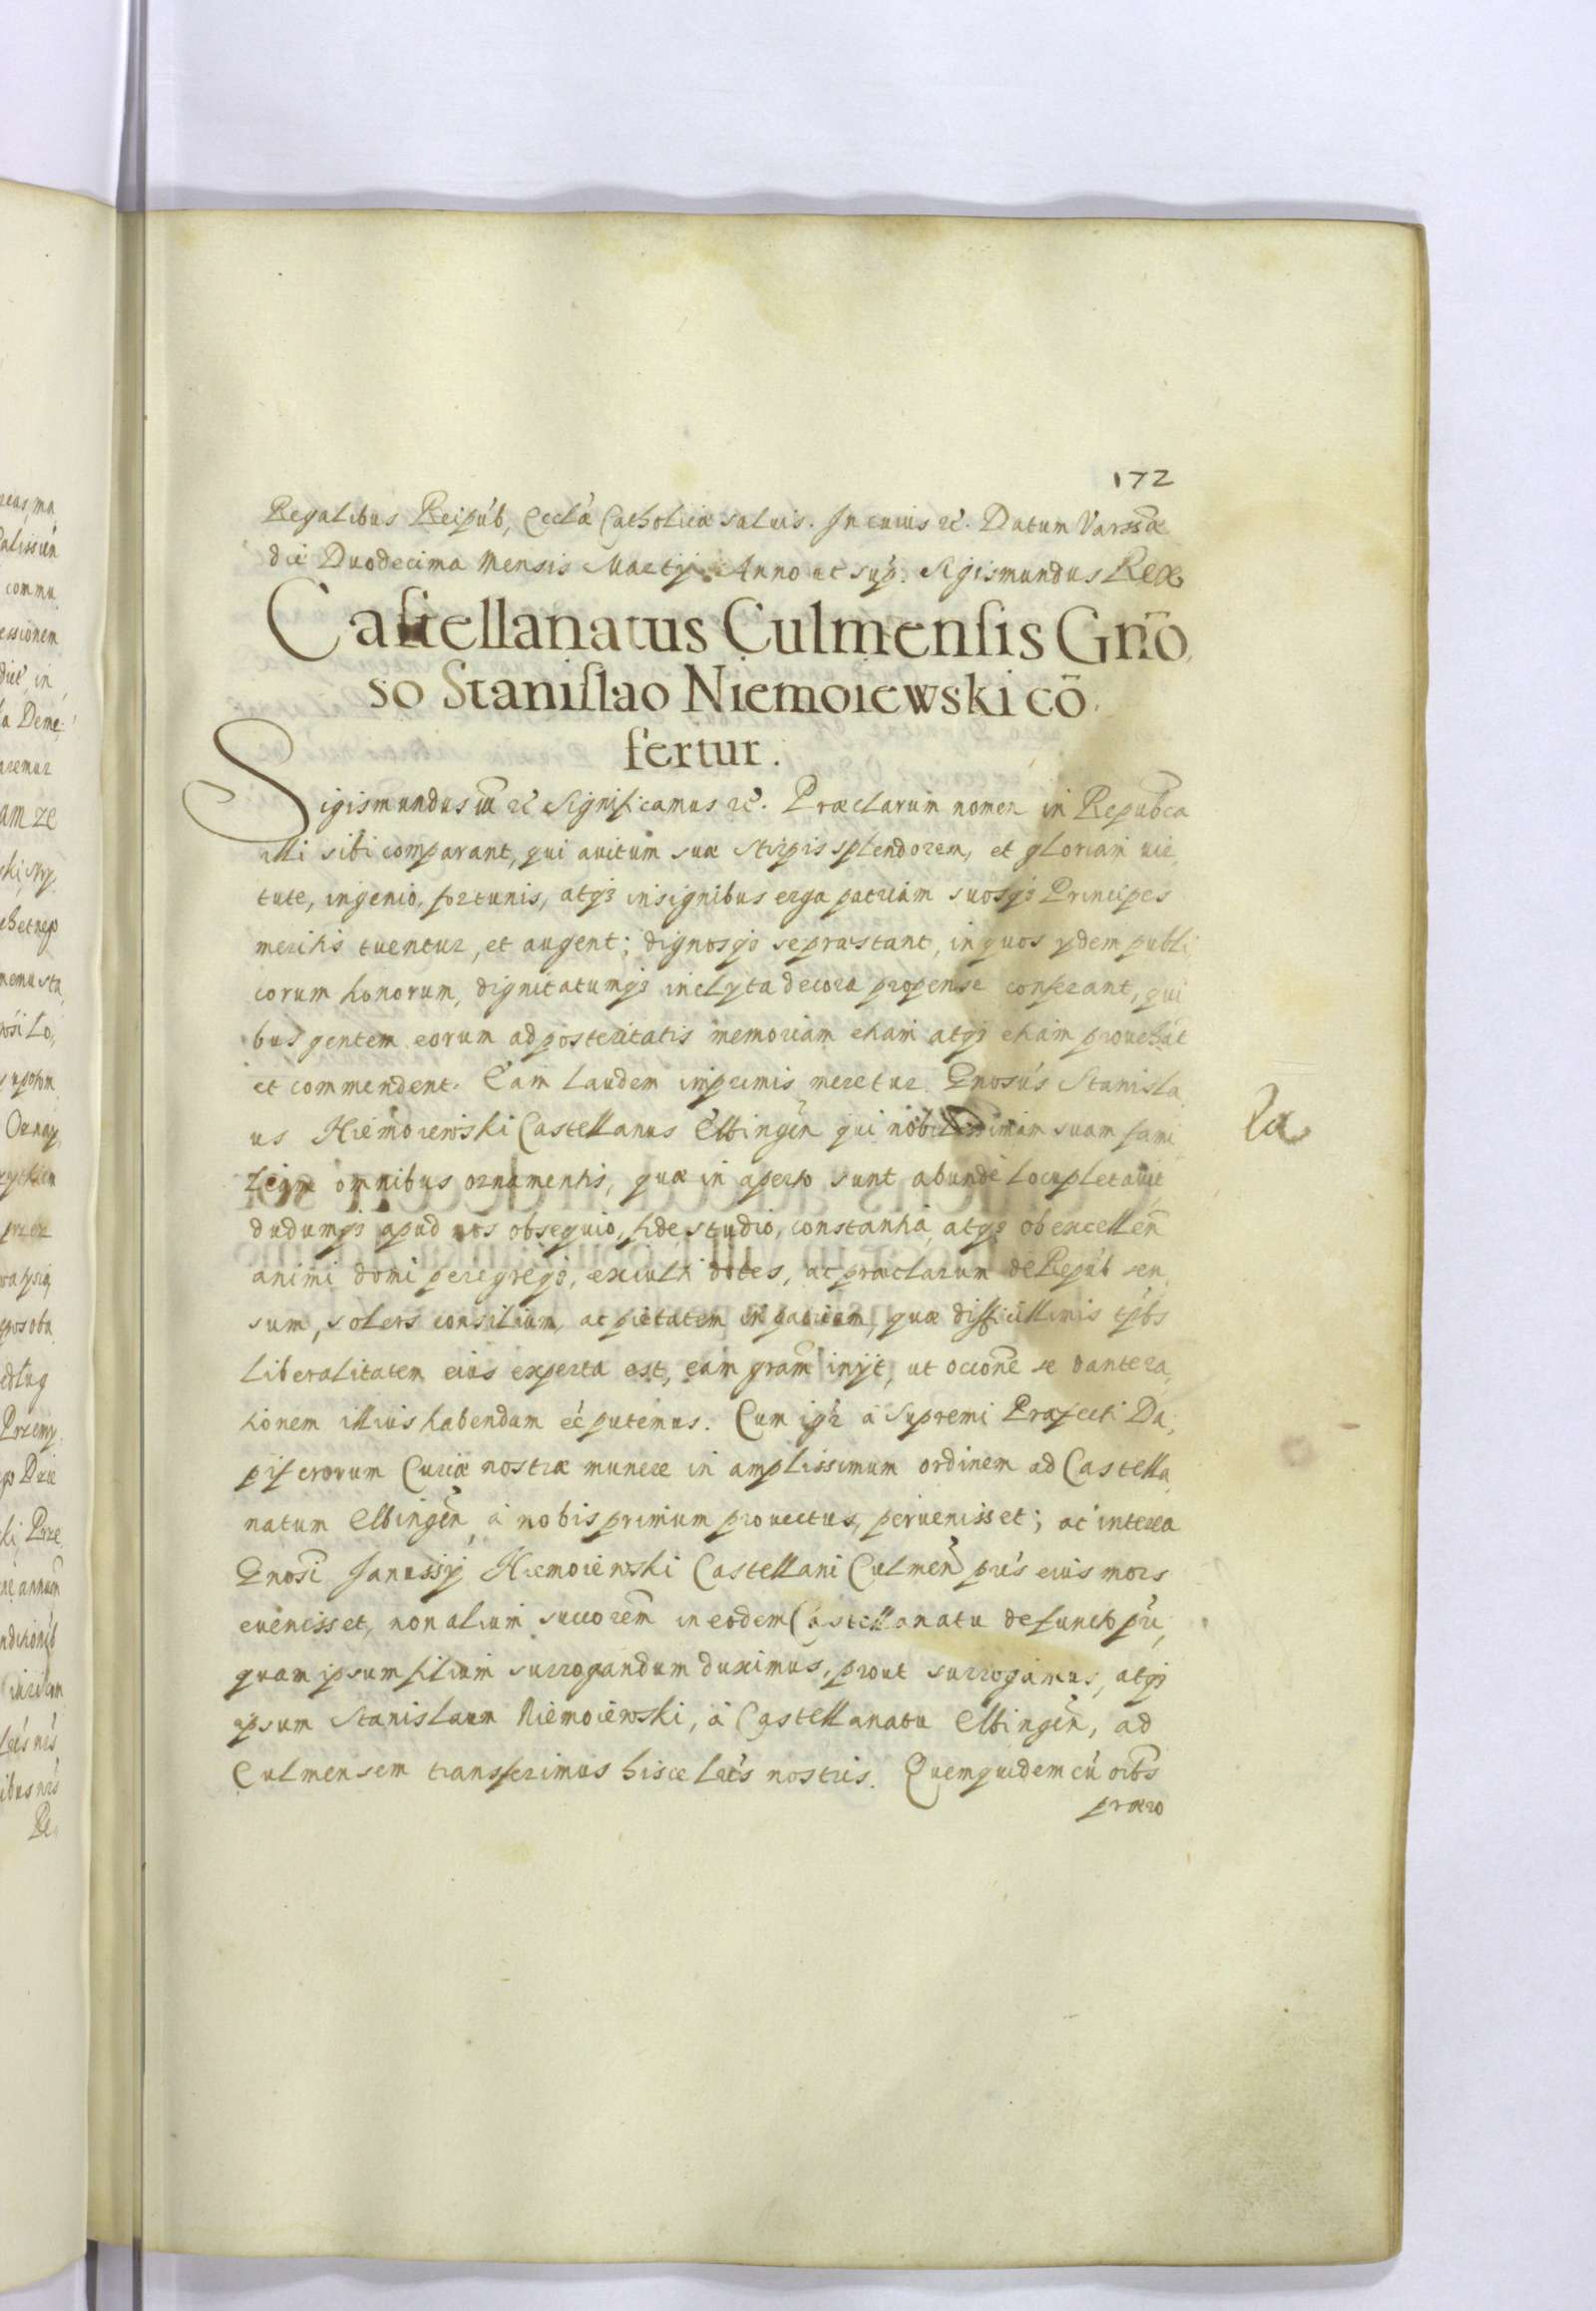 172
Regalibus Reipúb, Ecclã Catholicæ saluis. In cuius rc̃. Datum Varssãe
die Duodecima Mensis Martij Anno ut sup. Sigismundus Rex
Castellanatus Culmensis Gnõ
so Stanislao Niemoiewski cõ
fertur.
Sigismundus rc̃ Significamus rc̃. Præclarum nomen in Repubca
illi sibi comparant, qui auitum suæ stirpis splendorem, et gloriam uir
tute, ingenio, fortunis, atqз insignibus erga patriam suosqз Principes
meritis tuentur, et augent; dignosqз se præstant, in quos ydem publi
corum honorum, dignitatumqз inclyta decora propense conferant, qui
bus gentem eorum ad posteritatis memoriam etiam atqз etiam prouehãt
et commendent. Eam laudem inprimis meretur Gnosus Stanisla
us Niemoiewski Castellanus Elbingeñ qui suam fami
liam omnibus ornamentis, quæ in aperto sunt abundè locupletauit
dudumqз apud nos obsequio, fide studio, constantia, atqз ob excelleñ
animi domi peregreqз, exculti dotes, ac præclarum de Repúb sen
sum, solers consilium, ac pietatem in patriam, quæ difficillimis tpbs
liberalitatem eius experta est, eam gram̃ inijt, ut occone se dante ra
tionem illius habendam eẽ putemus. Cum igr̃ à Supremi Præfecti Da
piferorum Curiæ nostræ munere in amplissimum ordinem ad Castella
natum Elbingeñ à nobis primum prouectus, peruenisset; ac interea
Gnosi Janussij Niemoiewski Castellani Culmeñ pris eius mors
euenisset, non alium succorem in eodem Castellanatu defuncto pri
quam ipsum filium surrogandum duximus, prout surrogamus, atqз
ipsum Stanislaum Niemoiewski, à Castellanatu Elbingeñ, ad
Culmensem transferimus hisce lris nostris. Quemquidem cũ oibs
præro